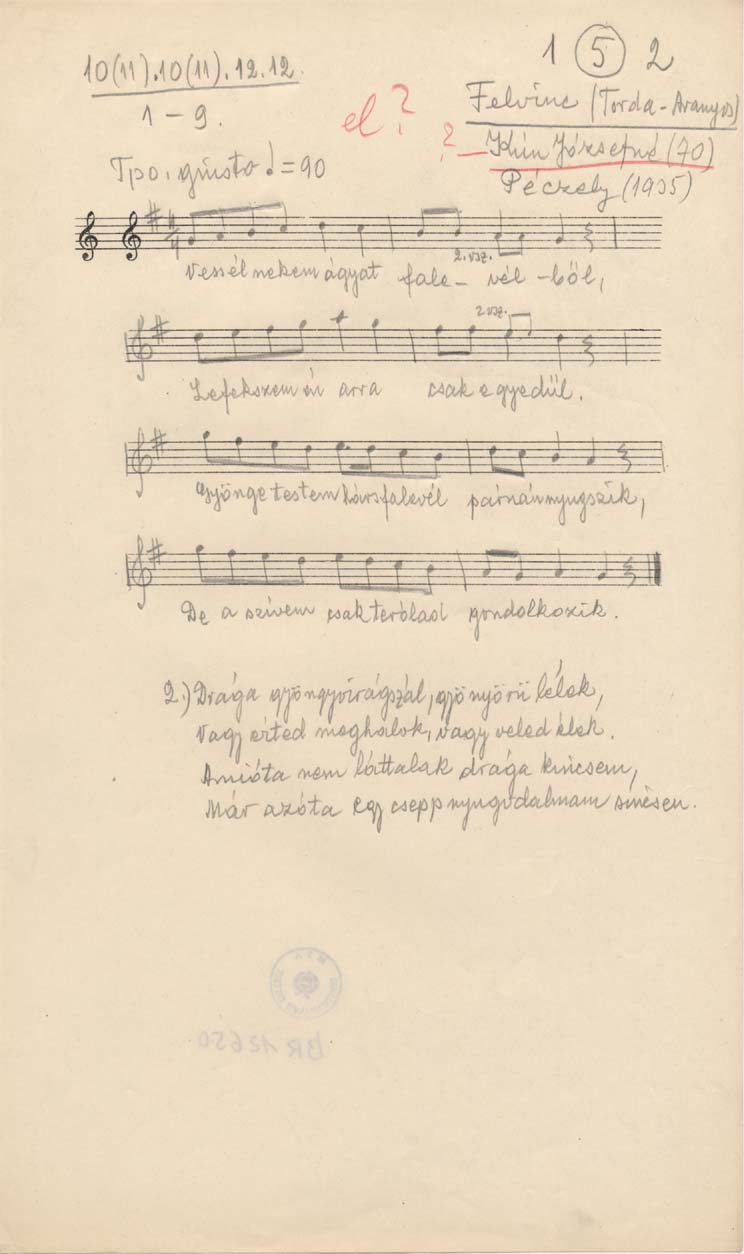 1 5 2
10(11).10(11).12.12.
1-9.
el?
Felvinc (Torda-Aranyos)
?- Kún Józsefné (70)
Péczely (1935)
Tpo. giusto ♩=90
4/4
2.vsz.
Vessél nekem ágyat fale-vél-ből,
2 vsz.
Lefekszem én arra csak egyedül.
Gyönge testem hársfalevél párnán nyugszik,
De a szívem csak terólad gondolkozik.
2.) Drága gyöngyvirágszál, gyönyörű lélek,
Vagy érted meghalok, vagy veled élek.
Amióta nem láttalak drága kincsem,
Már azóta egy csepp nyugodalmam sincsen.
BR 12650